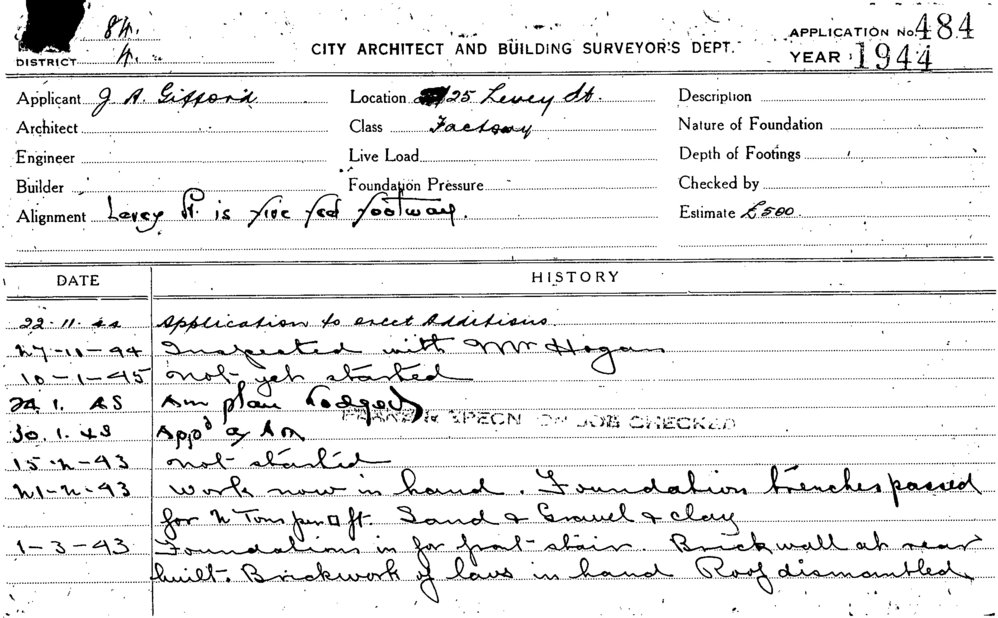 84.
DISTRICT 4.
CITY ARCHITECT AND BUILDING SURVEYOR'S DEPT.
APPLICATION No 484
YEAR 1944
Applicant J A. Gifford
Location 25 Levey St.
Description
Architect
Class Factory
Nature of Foundation
Engineer
Live Load
Depth of Footings
Builder
Foundation Pressure
Checked by
Alignment Levey St. is five footway.
Estimate £500
DATE HISTORY
22.11.44 Application to erect Additions
27-10-44 Inspected with Mr Hogan
10-1-45 not yet started
24.1.45 Am plan Lodged
PLANS & SPECN ON JOB CHECKED
30.1.45 Appd
15-2-43 not started
21-2-43 Work now in hand. Foundation trenches passed
for 2 Tons per □ ft. Sand & Gravel & clay
1-3-43 Foundations in for front stair. Brick wall at rear
built. Brickwork of lavs in hand Roof dismantled